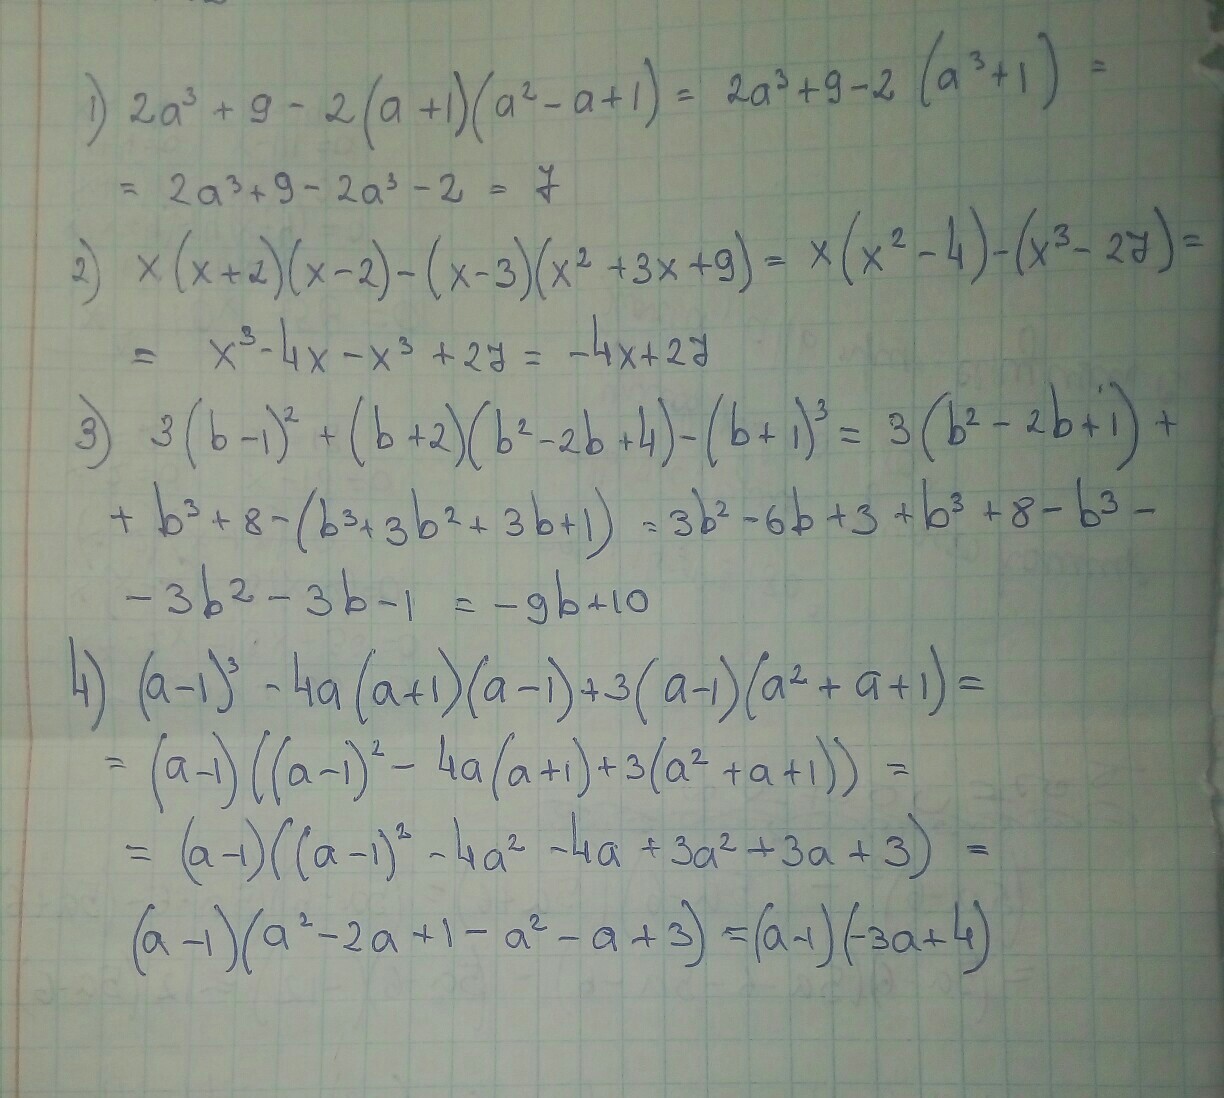 1) 2a³ + 9 - 2(a+1)(a² - a+1) = 2a³+9-2(a³+1) =
= 2a³+9-2a³-2 = 7
2) x(x+2)(x-2)-(x-3)(x²+3x+9) = x(x²-4)-(x³-27) =
= x³-4x-x³+27 = -4x+27
3) 3(b-1)² + (b+2)(b²-2b+4)-(b+1)³ = 3(b²-2b+1) +
+ b³+8-(b³+3b²+3b+1) = 3b²-6b+3+b³+8-b³-
-3b²-3b-1 = -9b+10
4) (a-1)³ -4a(a+1)(a-1)+3(a-1)(a²+a+1) =
= (a-1)((a-1)² - 4a(a+1)+3(a²+a+1)) =
= (a-1)((a-1)² -4a² -4a +3a²+3a+3) =
(a-1)(a²-2a+1-a²-a+3) = (a-1)(-3a+4)